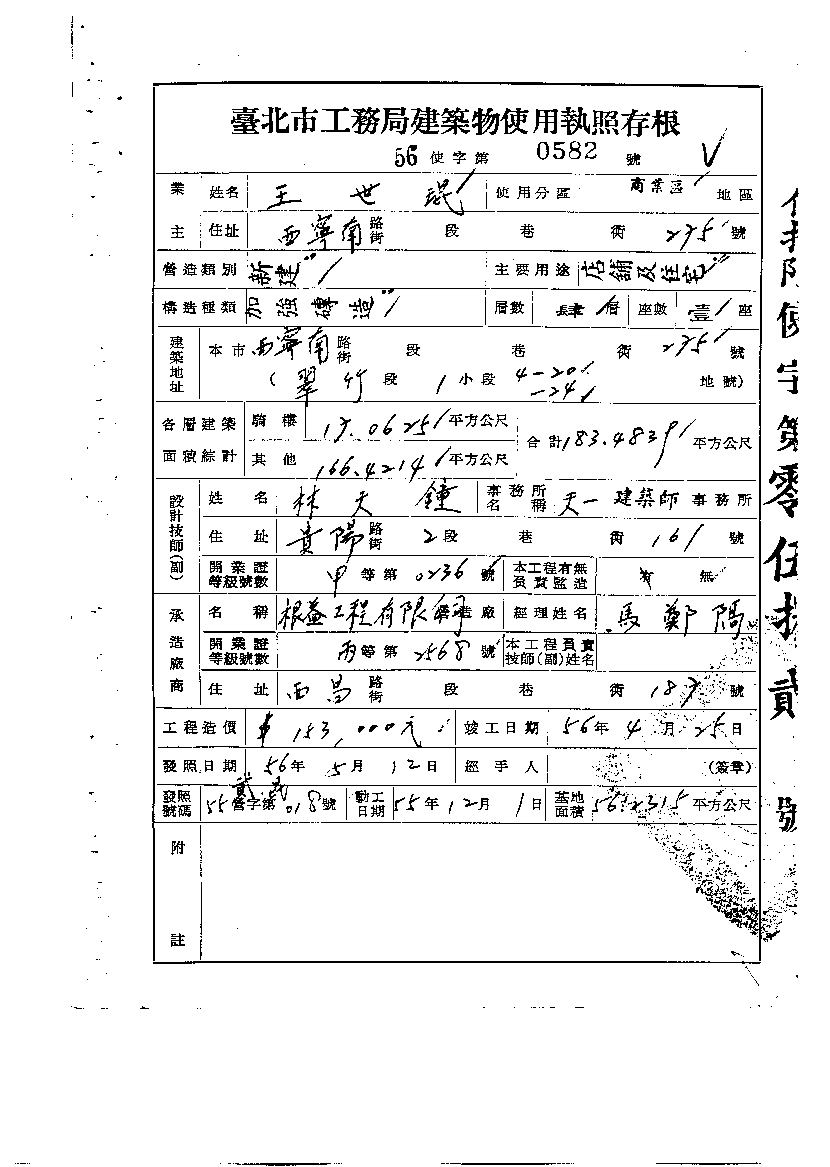 臺北市工務局建築物使用執照存根
56 使字第 0582 號
業主 姓名 王世琨 使用分區 商業區 地區
住址 西寧南路街 段 巷 衖 275 號
營造類別 新建 主要用途 店舖及住宅
構造種類 加強磚造 層數 肆層 座數 壹座
建築地址 本市 西寧南路街 段 巷 衖 275 號
(翠竹段 1 小段 4-20 -24 地號)
各層建築面積綜計 騎樓 17.0625 平方公尺 合計 183.4839 平方公尺
其他 166.4214 平方公尺
設計技師(副) 姓名 林天鐘 事務所名稱 天一建築師事務所
住址 貴陽路街 2段 巷 衖 161 號
開業證等級號數 甲等第 0236 號 本工程有無負責監造 有 無
承造廠商 名稱 根益工程有限公司 營造廠 經理姓名 馬鄭
開業證等級號數 丙等第 2568 號 本工程負責技師(副)姓名
住址 西昌路街 段 巷 衖 187 號
工程造價 153,000元 竣工日期 56年4月25日
發照日期 56年5月12日 經手人 (簽章)
發照號碼 55營字第 018號 動工日期 55年12月1日 基地面積 56.2315 平方公尺
附註
使字第零伍捌貳號